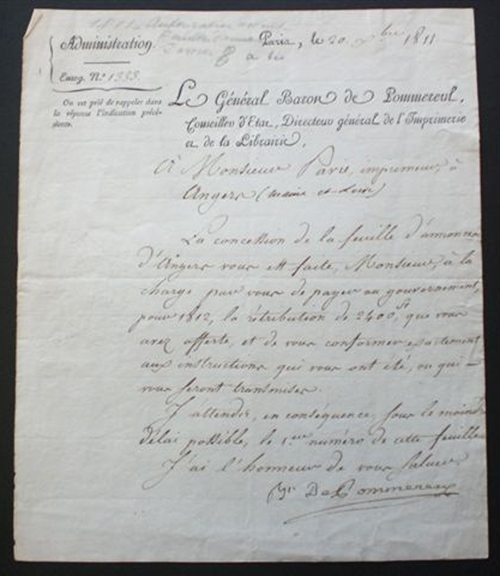 Administration.
Paris, le 20 Xbre 1811
Enreg. N.° 1353.
On est prié de rappeler dans
la réponse l'indication précé-
dente.
Le Général Baron de Pommereul,
Conseiller d'Etat, Directeur général de l'Imprimerie
et de la Librairie,
À Monsieur Pavie, imprimeur, à
Angers (Maine et Loire)
La concession de la feuille d'annonces
d'Angers vous est faite, Monsieur, à la
charge par vous de payer au gouvernement,
pour 1812, la rétribution de 2400 que vous
avez offerte, et de vous conformer exactement
aux instructions qui vous ont été, ou qui
vous seront transmises.
J'attendrai, en conséquence, sous le moindre
délai possible, le 1.er numéro de cette feuille.
J'ai l'honneur de vous saluer
De Pommereul